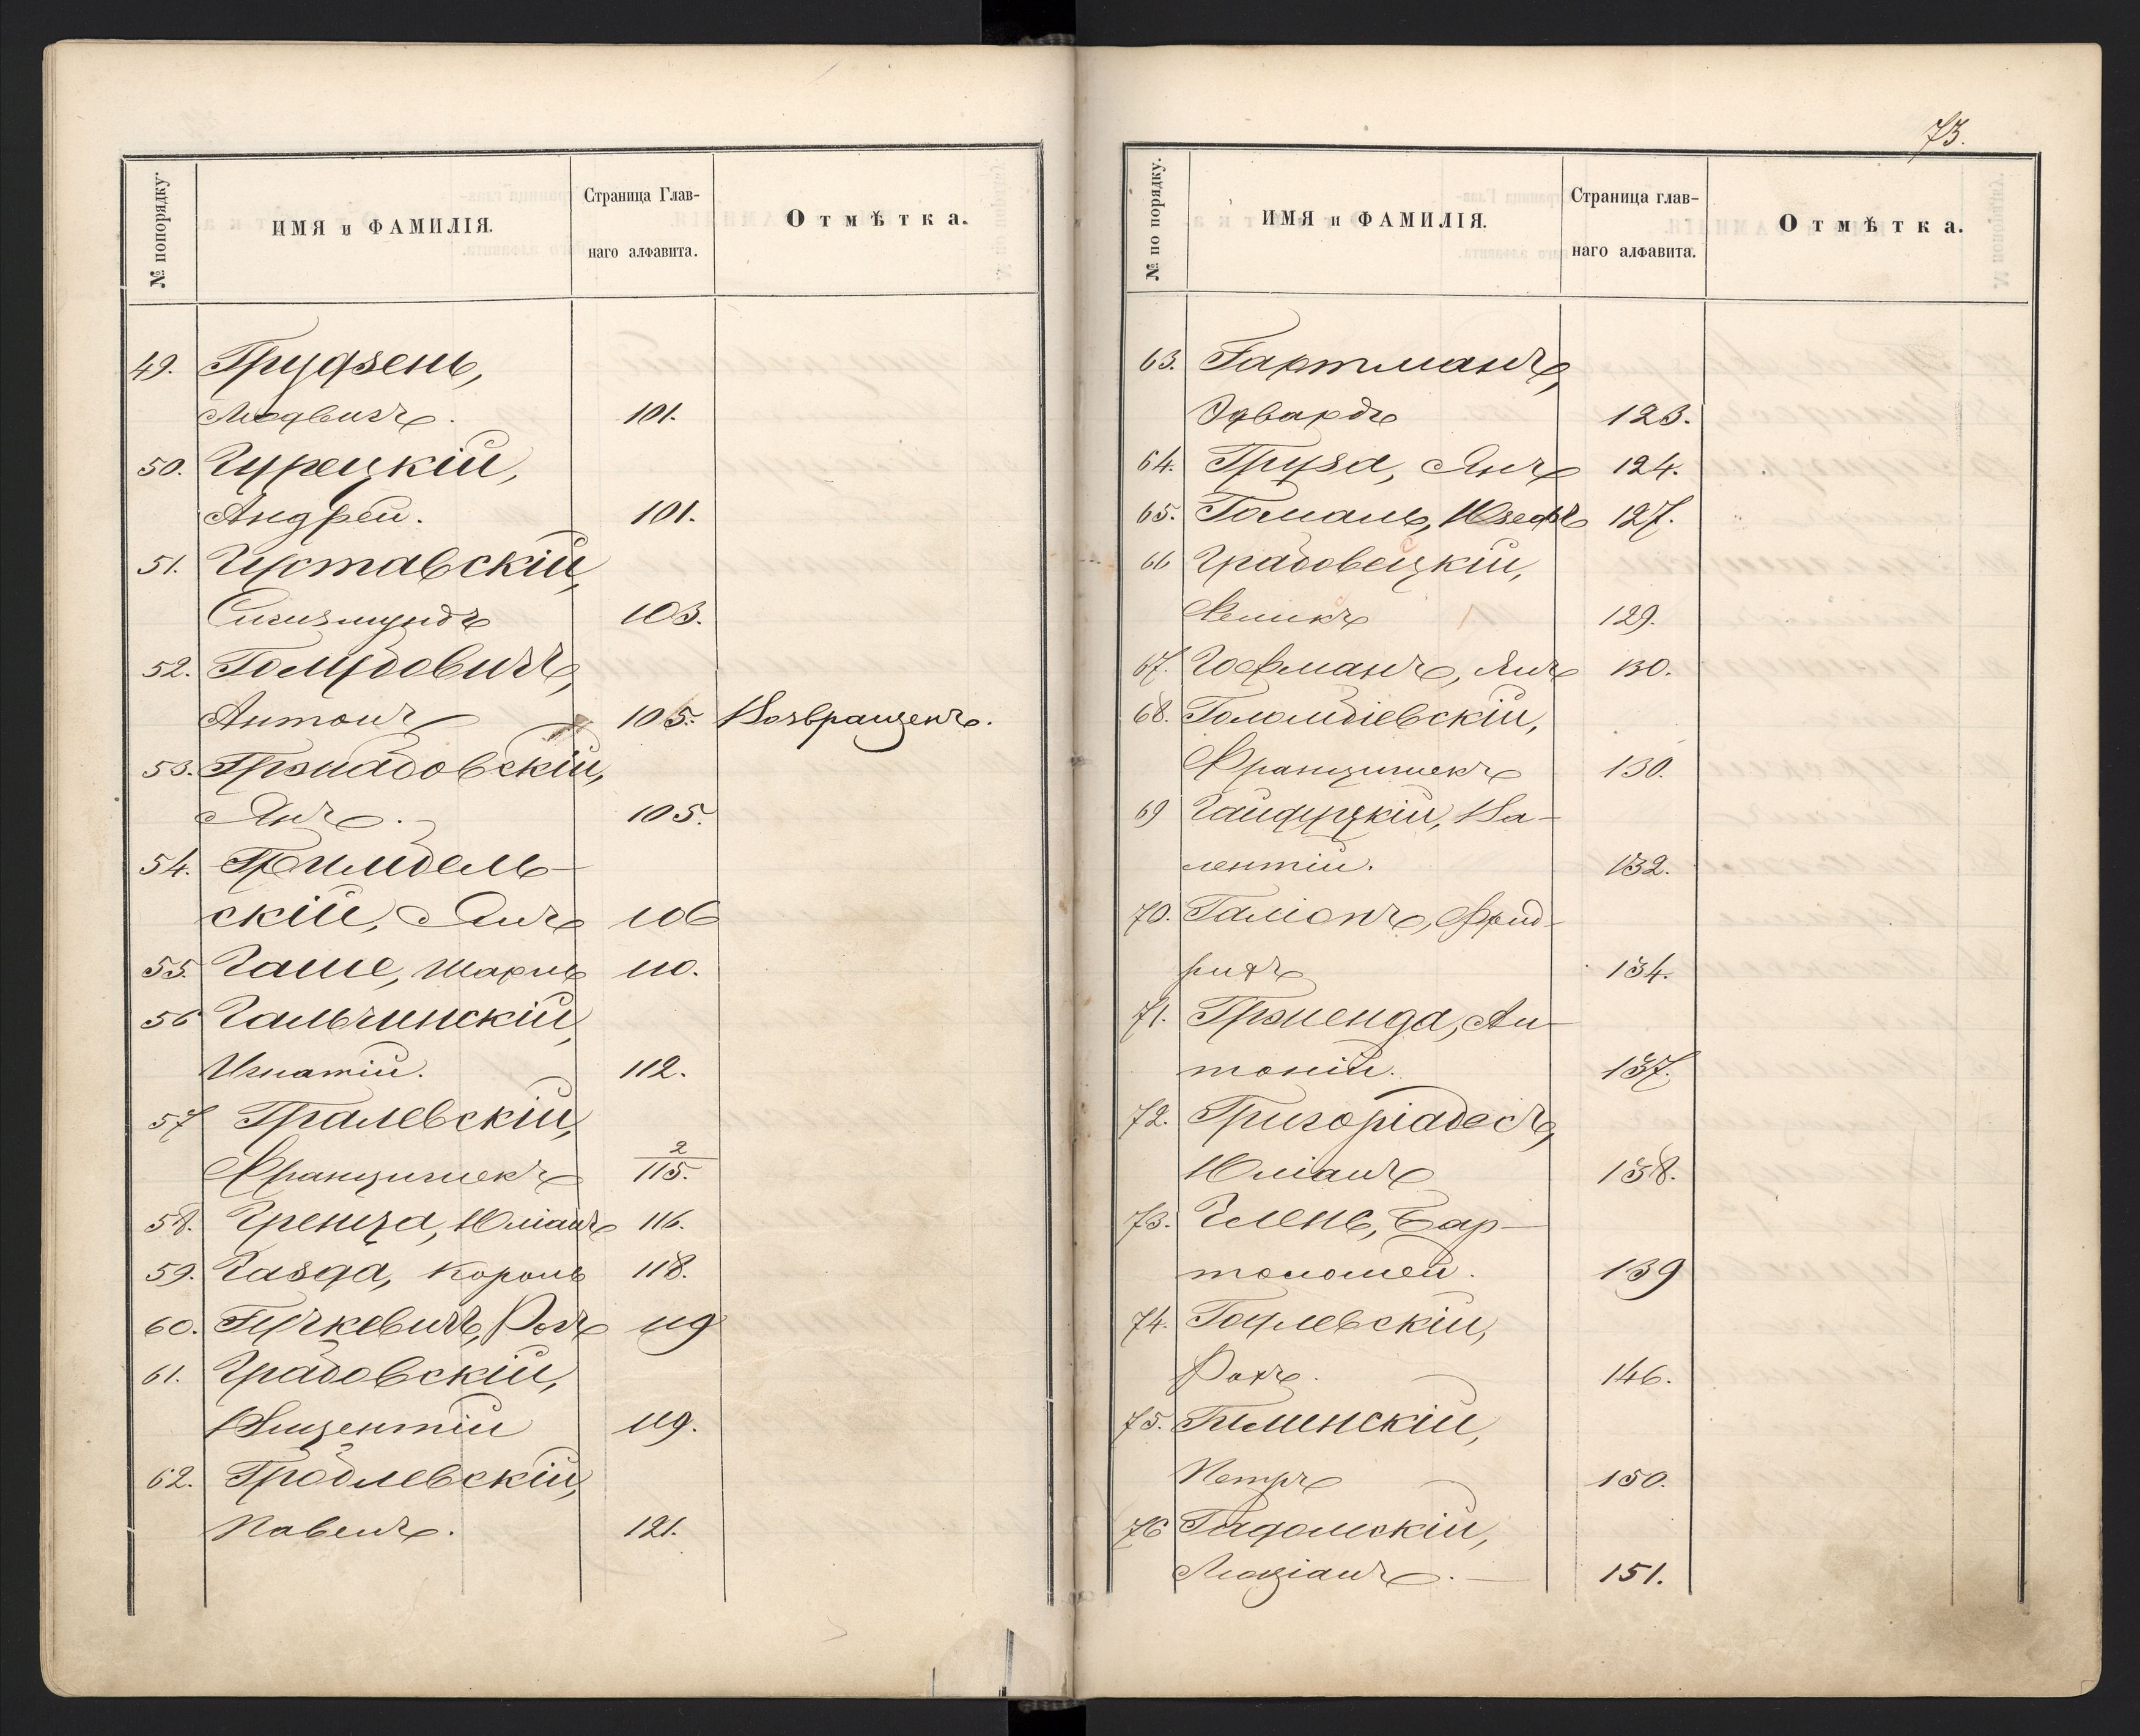 № попорядку.
ИМЯ и ФАМИЛІЯ.
Страница Глав-
наго алфавита.
Отмѣтка.
49. Грудзень,
Людвигъ. 101.
50. Гурецкій,
Андрей. 101.
51. Густавскій,
Сигизмундъ 103.
52. Голубовичъ,
Антонъ 105. Возвращенъ.
53.
Янъ. 105.
54.
скій, Янъ 106
55. Гаше, Шарль 110.
56 Гальчинскій,
Игнатій. 112.
57 Гралевскій,
Францишекъ 2/115.
58. Гренца, Юліанъ 116.
59. Газда, Кароль 118.
60. Гучкевичъ, Рохъ 119
61. Грабовскій,
Винцентій 119.
62. Гроблевскій,
Павелъ. 121.
73.
№ по порядку.
ИМЯ и ФАМИЛІЯ.
Страница глав-
наго алфавита.
Отмѣтка.
63. Гартманъ,
Эдвардъ 123.
64. Груза, Янъ 124.
65. Гомаль, Юзефъ 127.
66 Грабовецкій,
Феликъ 129.
67. Гофманъ, Янъ 130.
68. Голомбіевскій,
Францишекъ 130.
69 Гайдуцкій, Ва-
лентій. 132.
70. Фрид-
рихъ 134.
71. Ан-
тоній. 137.
72. Григоріадесъ,
Юліанъ 138.
73. Бар-
толомей. 139
74.
Рохъ. 146.
75.
Петръ 150.
76 Гадомскій,
Люціанъ. 151.